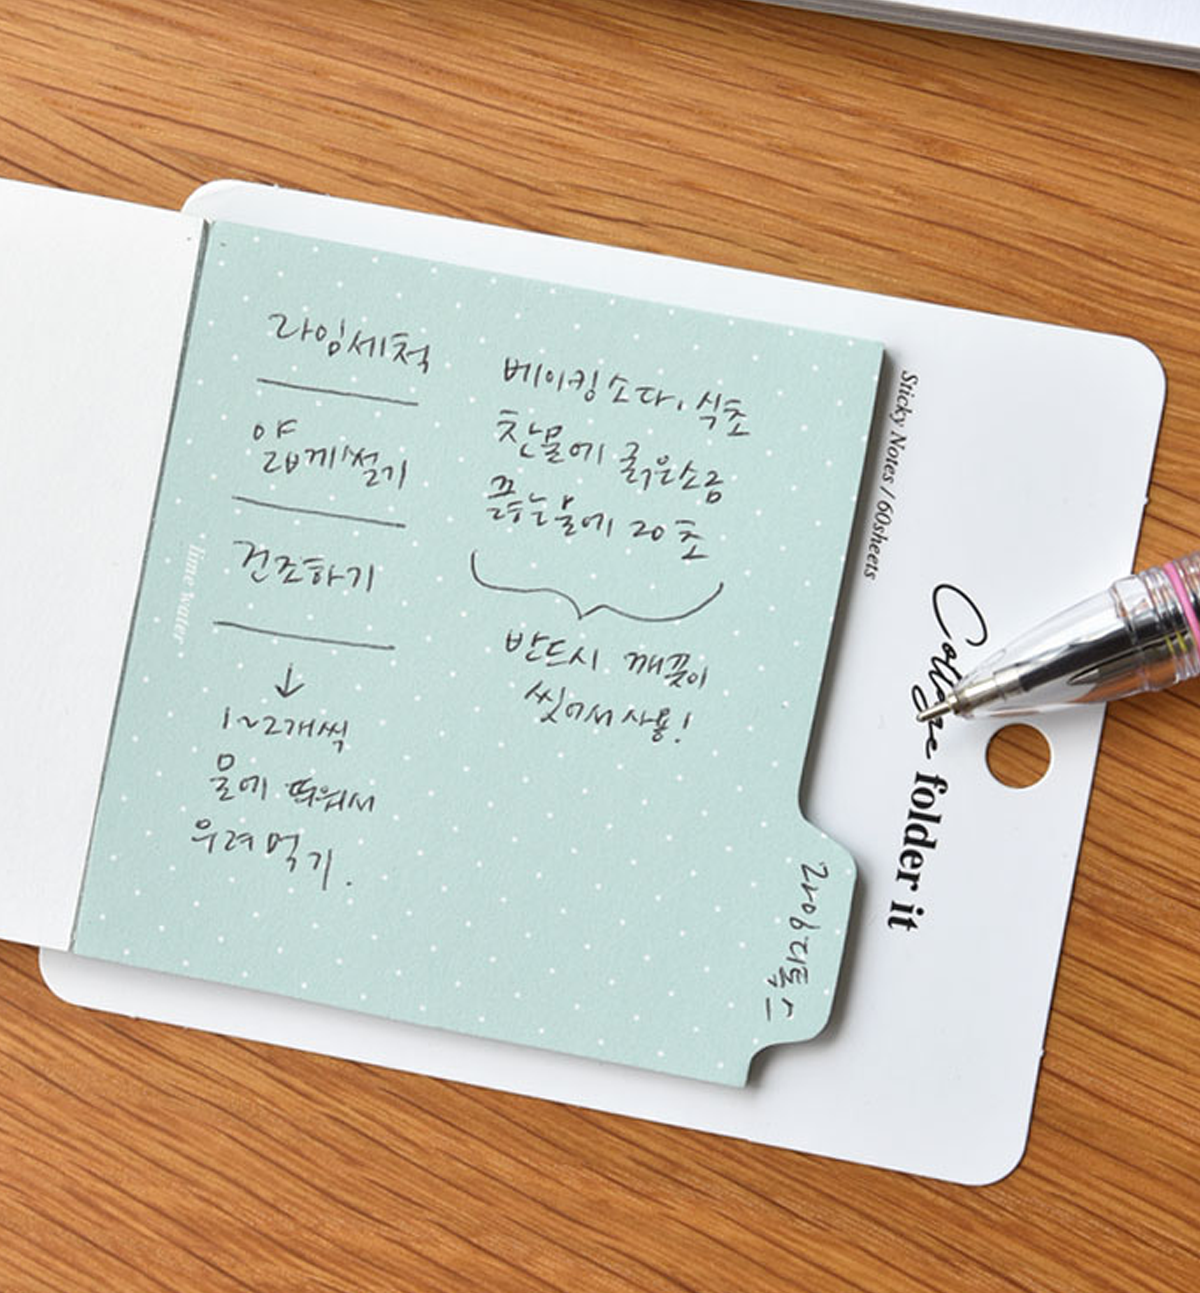 라임세척
얇게썰기
건조하기
↓
1~2개씩
물에 띄워서
우려먹기.
베이킹소다, 식초
찬물에 굵은소금
끓는물에 20초
반드시 깨끗이
씻어서 사용!
라임디톡스
lime water
Sticky Notes / 60sheets
College folder it